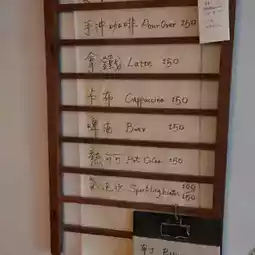 手沖咖啡 Pour Over 150
拿鐵 Latte 150
卡布 Cappuccino 150
啤酒 Beer 150
熱可可 Hot Cocoa 150
氣泡水 Sparkling water 100
150
布丁